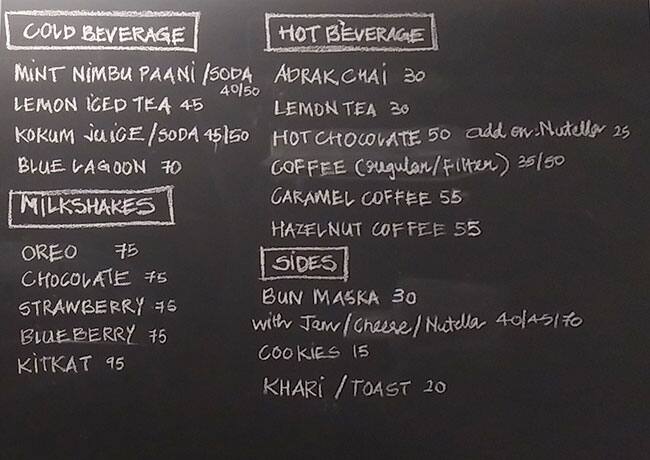 COLD BEVERAGE
MINT NIMBU PAANI /SODA
40/50
LEMON ICED TEA 45
KOKUM JUICE/SODA 45/50
BLUE LAGOON 70
MILKSHAKES
OREO 75
CHOCOLATE 75
STRAWBERRY 75
BLUEBERRY 75
KITKAT 95
HOT BEVERAGE
ADRAK CHAI 30
LEMON TEA 30
HOT CHOCOLATE 50 add on. Nutella 25
COFFEE (regular/filter) 35/50
CARAMEL COFFEE 55
HAZELNUT COFFEE 55
SIDES
BUN MASKA 30
with Jam/Cheese/Nutella 40/45/70
COOKIES 15
KHARI /TOAST 20